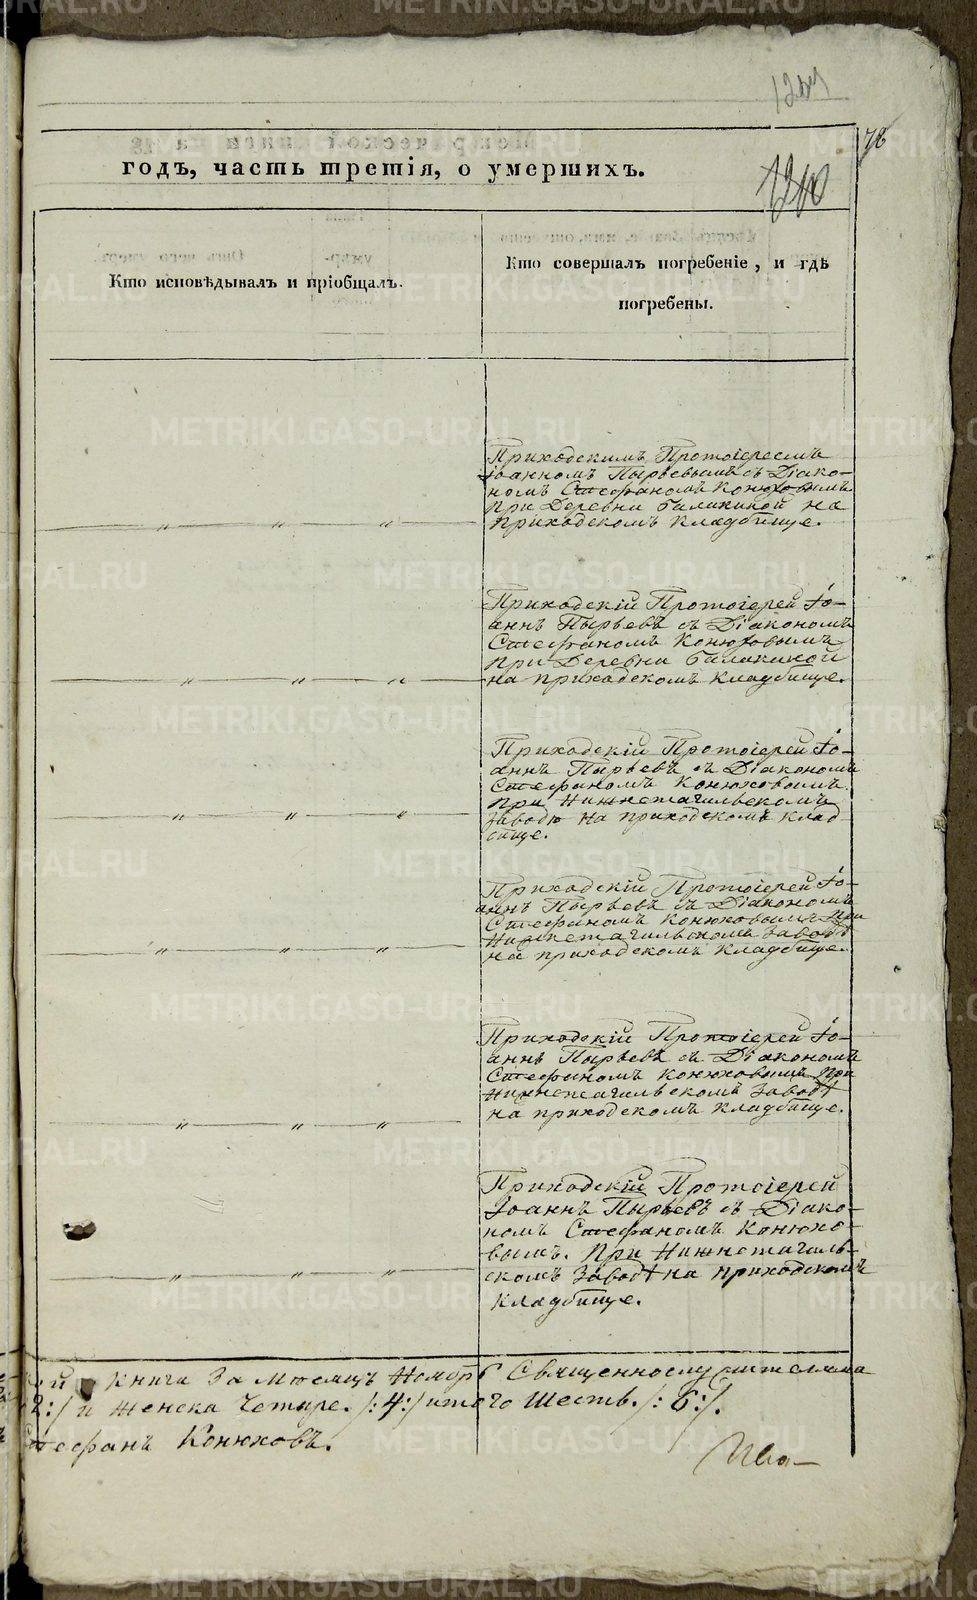 78
годъ, часть третія, о умершихъ.
Кто исповѣдывалъ и пріобщалъ.
Кто совершалъ погребеніе, и гдѣ
погребены.
Приходскимъ Протоіереемъ
Іоанномъ Пырьевымъ съ Діако-
номъ Стефаномъ Конюховымъ
при Деревни Балакиной на
приходскомъ кладбище.
Приходскій Протоіерей Іо-
аннъ Пырьевъ съ Діакономъ
Стефаномъ Конюховымъ
при Деревни Балакиной
на приходскомъ кладбище.
Приходскій Протоіерей Іо-
аннъ Пырьевъ съ Діакономъ
Стефаномъ Конюховымъ
при Нижнетагильскомъ
заводѣ на приходскомъ клад
бище.
Приходскій Протоіерей Іо-
аннъ Пырьевъ съ Діакономъ
Стефаномъ Конюховымъ при
Нижнетагильскомъ заводѣ
на приходскомъ кладбище.
Приходскій Протоіерей Іо-
аннъ Пырьевъ съ Діакономъ
Стефаномъ Конюховымъ при
Нижнетагильскомъ заводѣ
на приходскомъ кладбище.
Приходскій Протоіерей
Іоаннъ Пырьевъ съ Діако-
номъ Стефаномъ Конюхо-
вымъ. При Нижнетагиль-
скомъ заводѣ на приходскомъ
кладбище.
Книги За Месяцъ Ноябрь Священнослужителями
2:/ и женска Четыре. /:4:/ итого Шесть. /:6:/.
Стефанъ Конюховъ.
METRIKI.GASO-URAL.RU